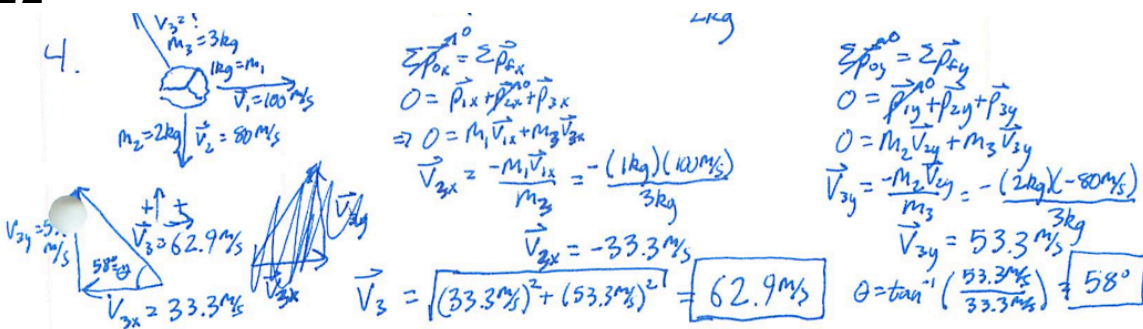 4.
V₃ = ?
m₃ = 3kg
1kg = m₁
V⃗₁ = 100 m/s
m₂ = 2kg V⃗₂ = 80 m/s
+ +
V⃗₃ = 62.9 m/s
58° = θ
V₃ₓ = 33.3 m/s
2kg
Σp⃗ₒₓ⁰ = Σp⃗fₓ
0 = p⃗₁ₓ + p⃗₂ₓ⁰ + p⃗₃ₓ
⇒ 0 = m₁V⃗₁ₓ + m₃V⃗₃ₓ
V⃗₃ₓ = -m₁V⃗₁ₓ / m₃ = -(1kg)(100 m/s) / 3kg
V⃗₃ₓ = -33.3 m/s
V⃗₃ = √((33.3 m/s)² + (53.3 m/s)²) = 62.9 m/s
Σp⃗ₒy⁰ = Σp⃗fy
0 = p⃗₁y⁰ + p⃗₂y + p⃗₃y
0 = m₂V⃗₂y + m₃V⃗₃y
V⃗₃y = -m₂V⃗₂y / m₃ = -(2kg)(-80 m/s) / 3kg
V⃗₃y = 53.3 m/s
θ = tan⁻¹(53.3 m/s / 33.3 m/s) = 58°